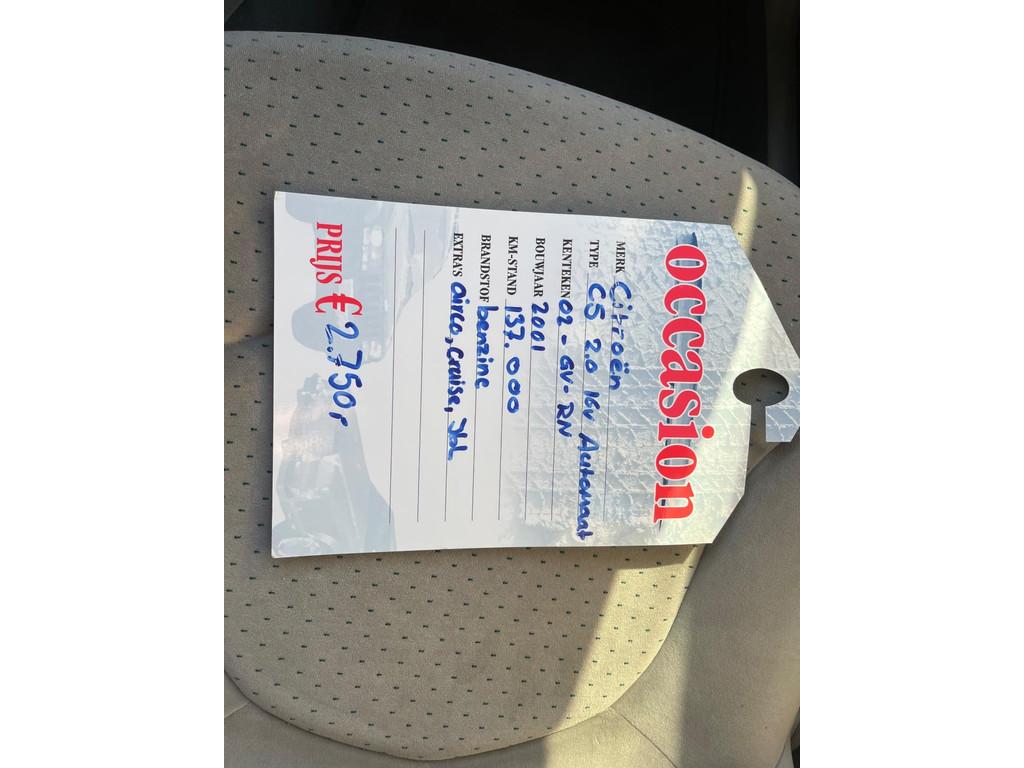 occasion
MERK Citroën
TYPE C5 2.0 16v Automaat
KENTEKEN 02-GV-RN
BOUWJAAR 2001
KM-STAND 137.000
BRANDSTOF benzine
EXTRA'S airco, Cruise,
PRIJS € 2.750,